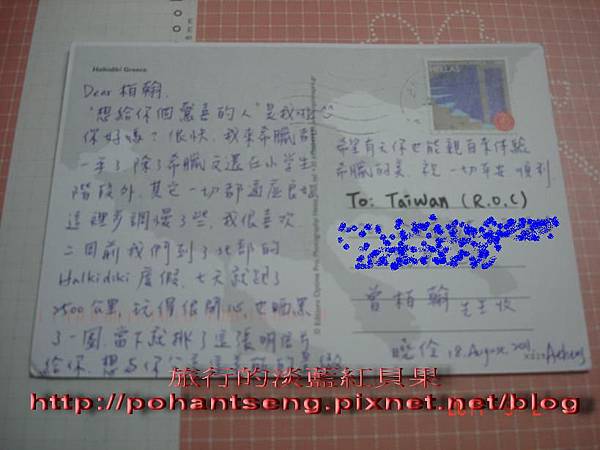 Halkidiki Greece
HELLAS
Dear 柏翰,
"想給你個驚喜的人"是我啦!
你好嗎?很快,我來希臘都
一年了,除了希臘文還在小學生
階段外,其它一切都適應良好
這裡步調慢了些,我很喜歡
二周前我們到了北部的
Halkidiki 度假,七天就跑了
2500公里,玩得很開心,也曬黑
了一圈,當下就挑了這張明信片
給你,想與你分享這美麗的
希望有天你也能親自來體驗
希臘的美,祝一切平安 順利
To: Taiwan (R.O.C)
曾柏翰 先生收
18. August. 2011
Athens
旅行的淡藍紅貝果
http://pohantseng.pixnet.net/blog